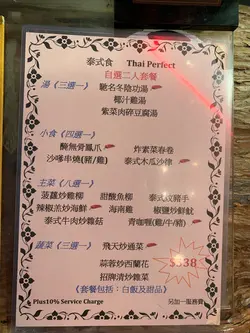 泰式食 Thai Perfect
自選二人套餐
湯《三選一》 馳名冬陰功湯
椰汁雞湯
紫菜肉碎豆腐湯
小食《四選一》
醃無骨鳳爪 炸紫菜春卷
沙嗲串燒(豬/雞) 泰式木瓜沙律
主菜《八選一》
菠蘿炒飯 甜酸魚柳 泰式豬手
辣椒羔炒海鮮 海南雞 椒鹽炒鮮魷
泰式牛肉炒雜菇 青咖喱(雞/牛/豬)
蔬菜《三選一》 飛天炒通菜
蒜蓉炒西蘭花
招牌清炒雜菜
$338
《套餐包括：白飯及甜品》
Plus10% Service Charge 另加一服務費